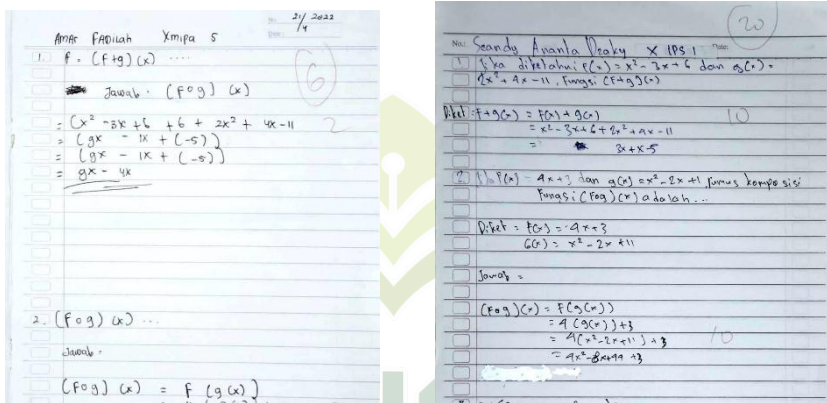 21/4 2022
Amar Fadilah Xmipa 5
6
1. f. (f+g) (x) ....
Jawab. (fog) (x)
= (x² -3x +6 +6 + 2x² + 4x -11
2
= (9x - 1x + (-5))
= (9x - 1x + (-5))
= 9x - 4x
2. (fog) (x) ...
Jawab =
(fog) (x) = f (g(x))
20
No: Seandy Ananta Dzaky X IPS 1
1. Jika diketahui f(x) = x² - 3x + 6 dan g(x) =
2x² + 4x - 11. Fungsi (f+g)(x)
Diket : f+g(x) = f(x) + g(x)
10
= x² - 3x + 6 + 2x² + 4x - 11
= 3x + x - 5
2. f(x) = 4x + 3 dan g(x) = x² - 2x + 1, rumus komposisi
Fungsi (fog)(x) adalah ...
Diket = f(x) = 4x + 3
G(x) = x² - 2x + 11
Jawab =
(fog)(x) = f(g(x))
= 4(g(x)) + 3
= 4(x² - 2x + 11) + 3
10
= 4x² - 8x + 44 + 3